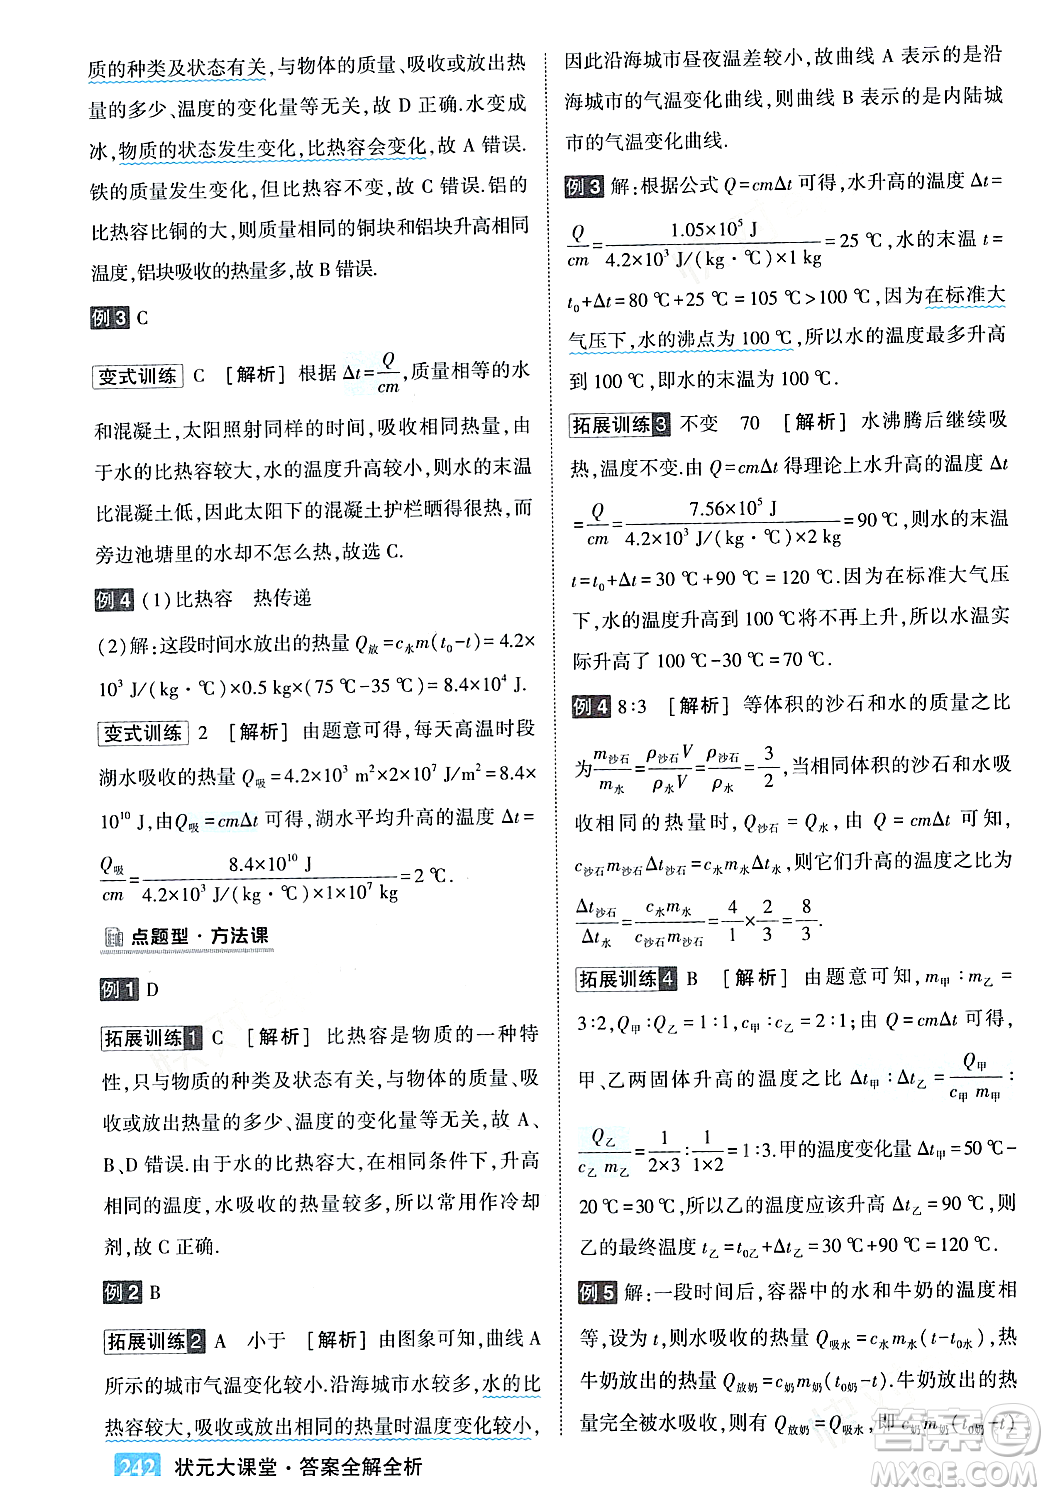 质的种类及状态有关,与物体的质量、吸收或放出热
量的多少、温度的变化量等无关,故 D 正确.水变成
冰,物质的状态发生变化,比热容会变化,故 A 错误.
铁的质量发生变化,但比热容不变,故 C 错误.铝的
比热容比铜的大,则质量相同的铜块和铝块升高相同
温度,铝块吸收的热量多,故 B 错误.
例3 C
变式训练 C [解析] 根据 Δt=Q/cm,质量相等的水
和混凝土,太阳照射同样的时间,吸收相同的热量,由
于水的比热容较大,水的温度升高较小,则水的末温
比混凝土低,因此太阳下的混凝土护栏晒得很热,而
旁边池塘里的水却不怎么热,故选 C.
例4 (1)比热容 热传递
(2)解:这段时间水放出的热量 Q放=c水m(t₀-t)=4.2×
10³ J/(kg·℃)×0.5 kg×(75 ℃-35 ℃)=8.4×10⁴ J.
变式训练 2 [解析] 由题意可得,每天高温时段
湖水吸收的热量 Q吸=4.2×10³ m²×2×10⁴=8.4×
10¹⁰ J,由Q吸=cmΔt 可得,湖水平均升高的温度 Δt=
Q吸/cm=8.4×10¹⁰ J/4.2×10³ J/(kg·℃)×1×10⁷ kg=2 ℃.
点题型·方法课
例1 D
拓展训练1 C [解析] 比热容是物质的一种特
性,只与物质的种类及状态有关,与物体的质量、吸
收或放出热量的多少、温度的变化量等无关,故 A、
B、D 错误.由于水的比热容大,在相同条件下,升高
相同的温度,水吸收的热量较多,所以常用作冷却
剂,故 C 正确.
例2 B
拓展训练2 A 小于 [解析] 由图象可知,曲线 A
所示的城市气温变化较小.沿海城市水较多,水的比
热容较大,吸收或放出相同的热量时温度变化较小,
242 状元大课堂·答案全解全析
因此沿海城市昼夜温差较小,故曲线 A 表示的是沿
海城市的气温变化曲线,则曲线 B 表示的是内陆城
市的气温变化曲线.
例3 解:根据公式 Q=cmΔt 可得,水升高的温度 Δt=
Q/cm=1.05×10⁵ J/4.2×10³ J/(kg·℃)×1 kg=25 ℃,水的末温 t=
t₀+Δt=80 ℃+25 ℃=105 ℃>100 ℃,因为在标准大
气压下,水的沸点为 100 ℃,所以水的温度最多升高
到 100 ℃,即水的末温为 100 ℃.
拓展训练3 不变 70 [解析] 水沸腾后继续吸
热,温度不变.由 Q=cmΔt 得理论上水升高的温度 Δt
=Q/cm=7.56×10⁵ J/4.2×10³ J/(kg·℃)×2 kg=90 ℃,则水的末温
t=t₀+Δt=30 ℃+90 ℃=120 ℃.因为在标准大气压
下,水的温度升高到 100 ℃将不再上升,所以水温实
际升高了 100 ℃-30 ℃=70 ℃.
例4 8∶3 [解析] 等体积的沙石和水的质量之比
为m沙石/m水=ρ沙石V/ρ水V=ρ沙石/ρ水=3/2,当相同体积的沙石和水吸
收相同的热量时,Q沙石=Q水,由 Q=cmΔt 可知,
c沙石m沙石Δt沙石=c水m水Δt水,则它们升高的温度之比为
Δt沙石/Δt水=c水m水/c沙石m沙石=4/1×2/3=8/3.
拓展训练4 B [解析] 由题意可知,m甲∶m乙=
3∶2,Q甲∶Q乙=1∶1,c甲∶c乙=2∶1;由 Q=cmΔt 可得,
甲、乙两固体升高的温度之比 Δt甲∶Δt乙=Q甲/c甲m甲∶
Q乙/c乙m乙=1/2×3∶1/1×2=1∶3.甲的温度变化量 Δt甲=50 ℃-
20 ℃=30 ℃,所以乙的温度应该升高 Δt乙=90 ℃,
乙的最终温度 t乙=t0乙+Δt乙=30 ℃+90 ℃=120 ℃.
例5 解:一段时间后,容器中的水和牛奶的温度相
等,设为 t,则水吸收的热量 Q吸水=c水m水(t-t0水),热
牛奶放出的热量 Q放奶=c奶m奶(t0奶-t).牛奶放出的热
量完全被水吸收,则有 Q放奶=Q吸水,即 c奶m奶(t0奶-t)